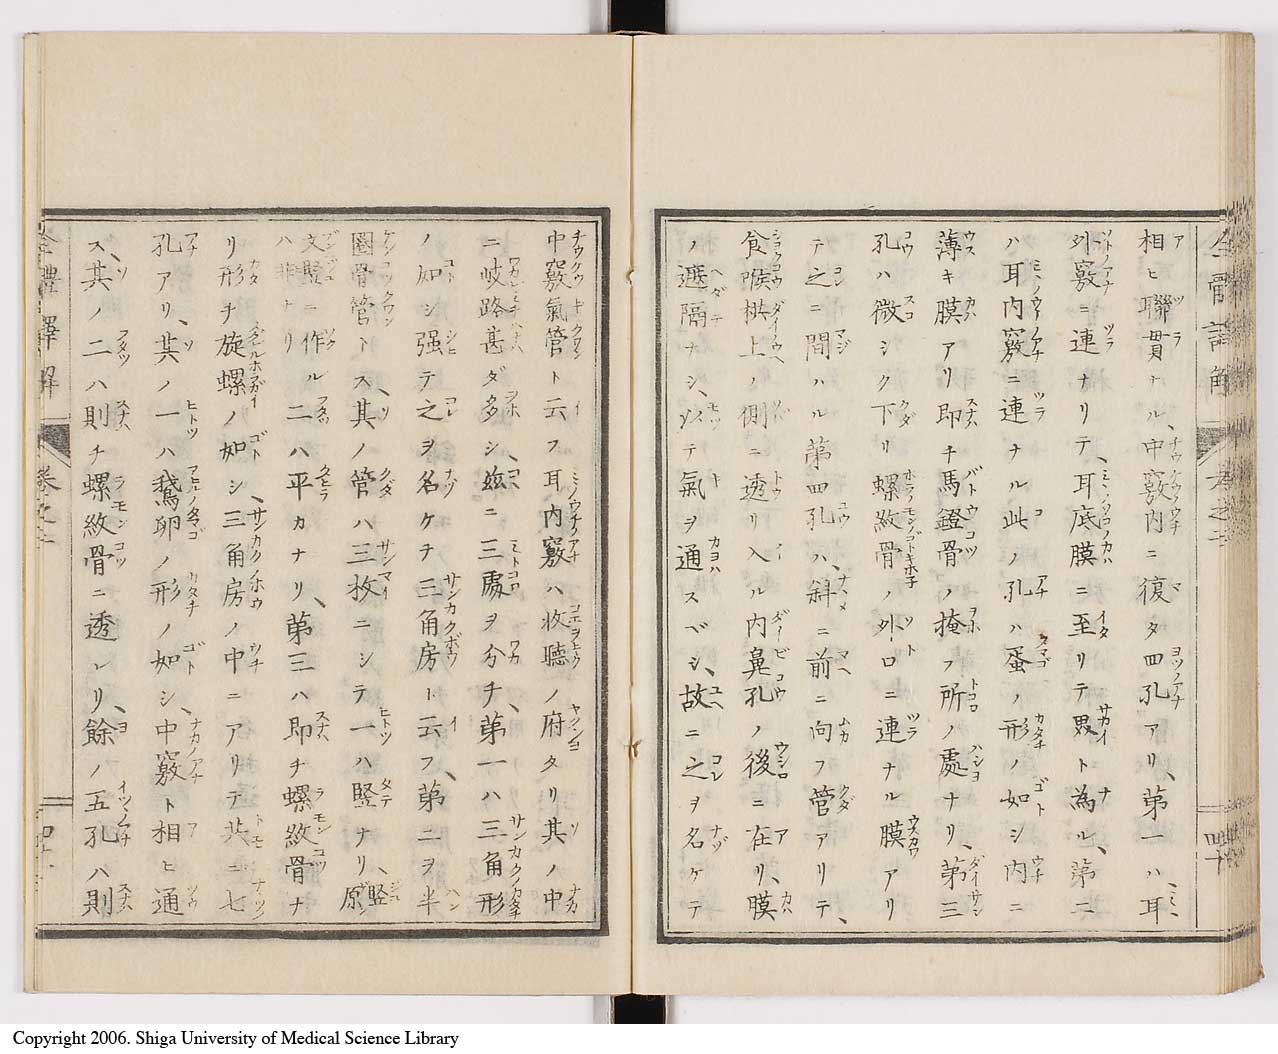 相ヒ聯貫ナル、中竅内ニ復タ四孔アリ、第一ハ耳
外竅ニ連ナリテ、耳底膜ニ至リテ界ト為ル、第二
ハ耳内竅ニ連ナル此ノ孔ハ蛋ノ形ノ如シ内ニ
薄キ膜アリ即チ馬鐙骨ノ掩フ所ノ處ナリ、第三
孔ハ微シク下リ螺紋骨ノ外口ニ連ナル膜アリ
テ之ニ間ハル第四孔ハ、斜ニ前ニ向フ管アリテ、
食喉拱上ノ側ニ透リ入ル内鼻孔ノ後ニ在リ、膜
ノ遮隔ナシ、以テ氣ヲ通スベシ、故ニ之ヲ名ケテ
中竅氣管ト云フ耳内竅ハ收聽ノ府タリ其ノ中
ニ岐路甚ダ多シ玆ニ三處ヲ分チ、第一ハ三角形
ノ如シ强テ之ヲ名ケチ三角房ト云フ、第二ヲ半
圏骨管トス、其ノ管ハ三枚ニシテ一ハ竪ナリ、竪原
文竪ニ作ルハ非ナリ二ハ平カナリ、第三ハ即チ螺紋骨ナ
リ形チ旋螺ノ如シ、三角房ノ中ニアリテ共ニ七
孔アリ、其ノ一ハ鵞卵ノ形ノ如シ、中竅ト相ヒ通
ス、其ノ二ハ則チ螺紋骨ニ透レリ、餘ノ五孔ハ則